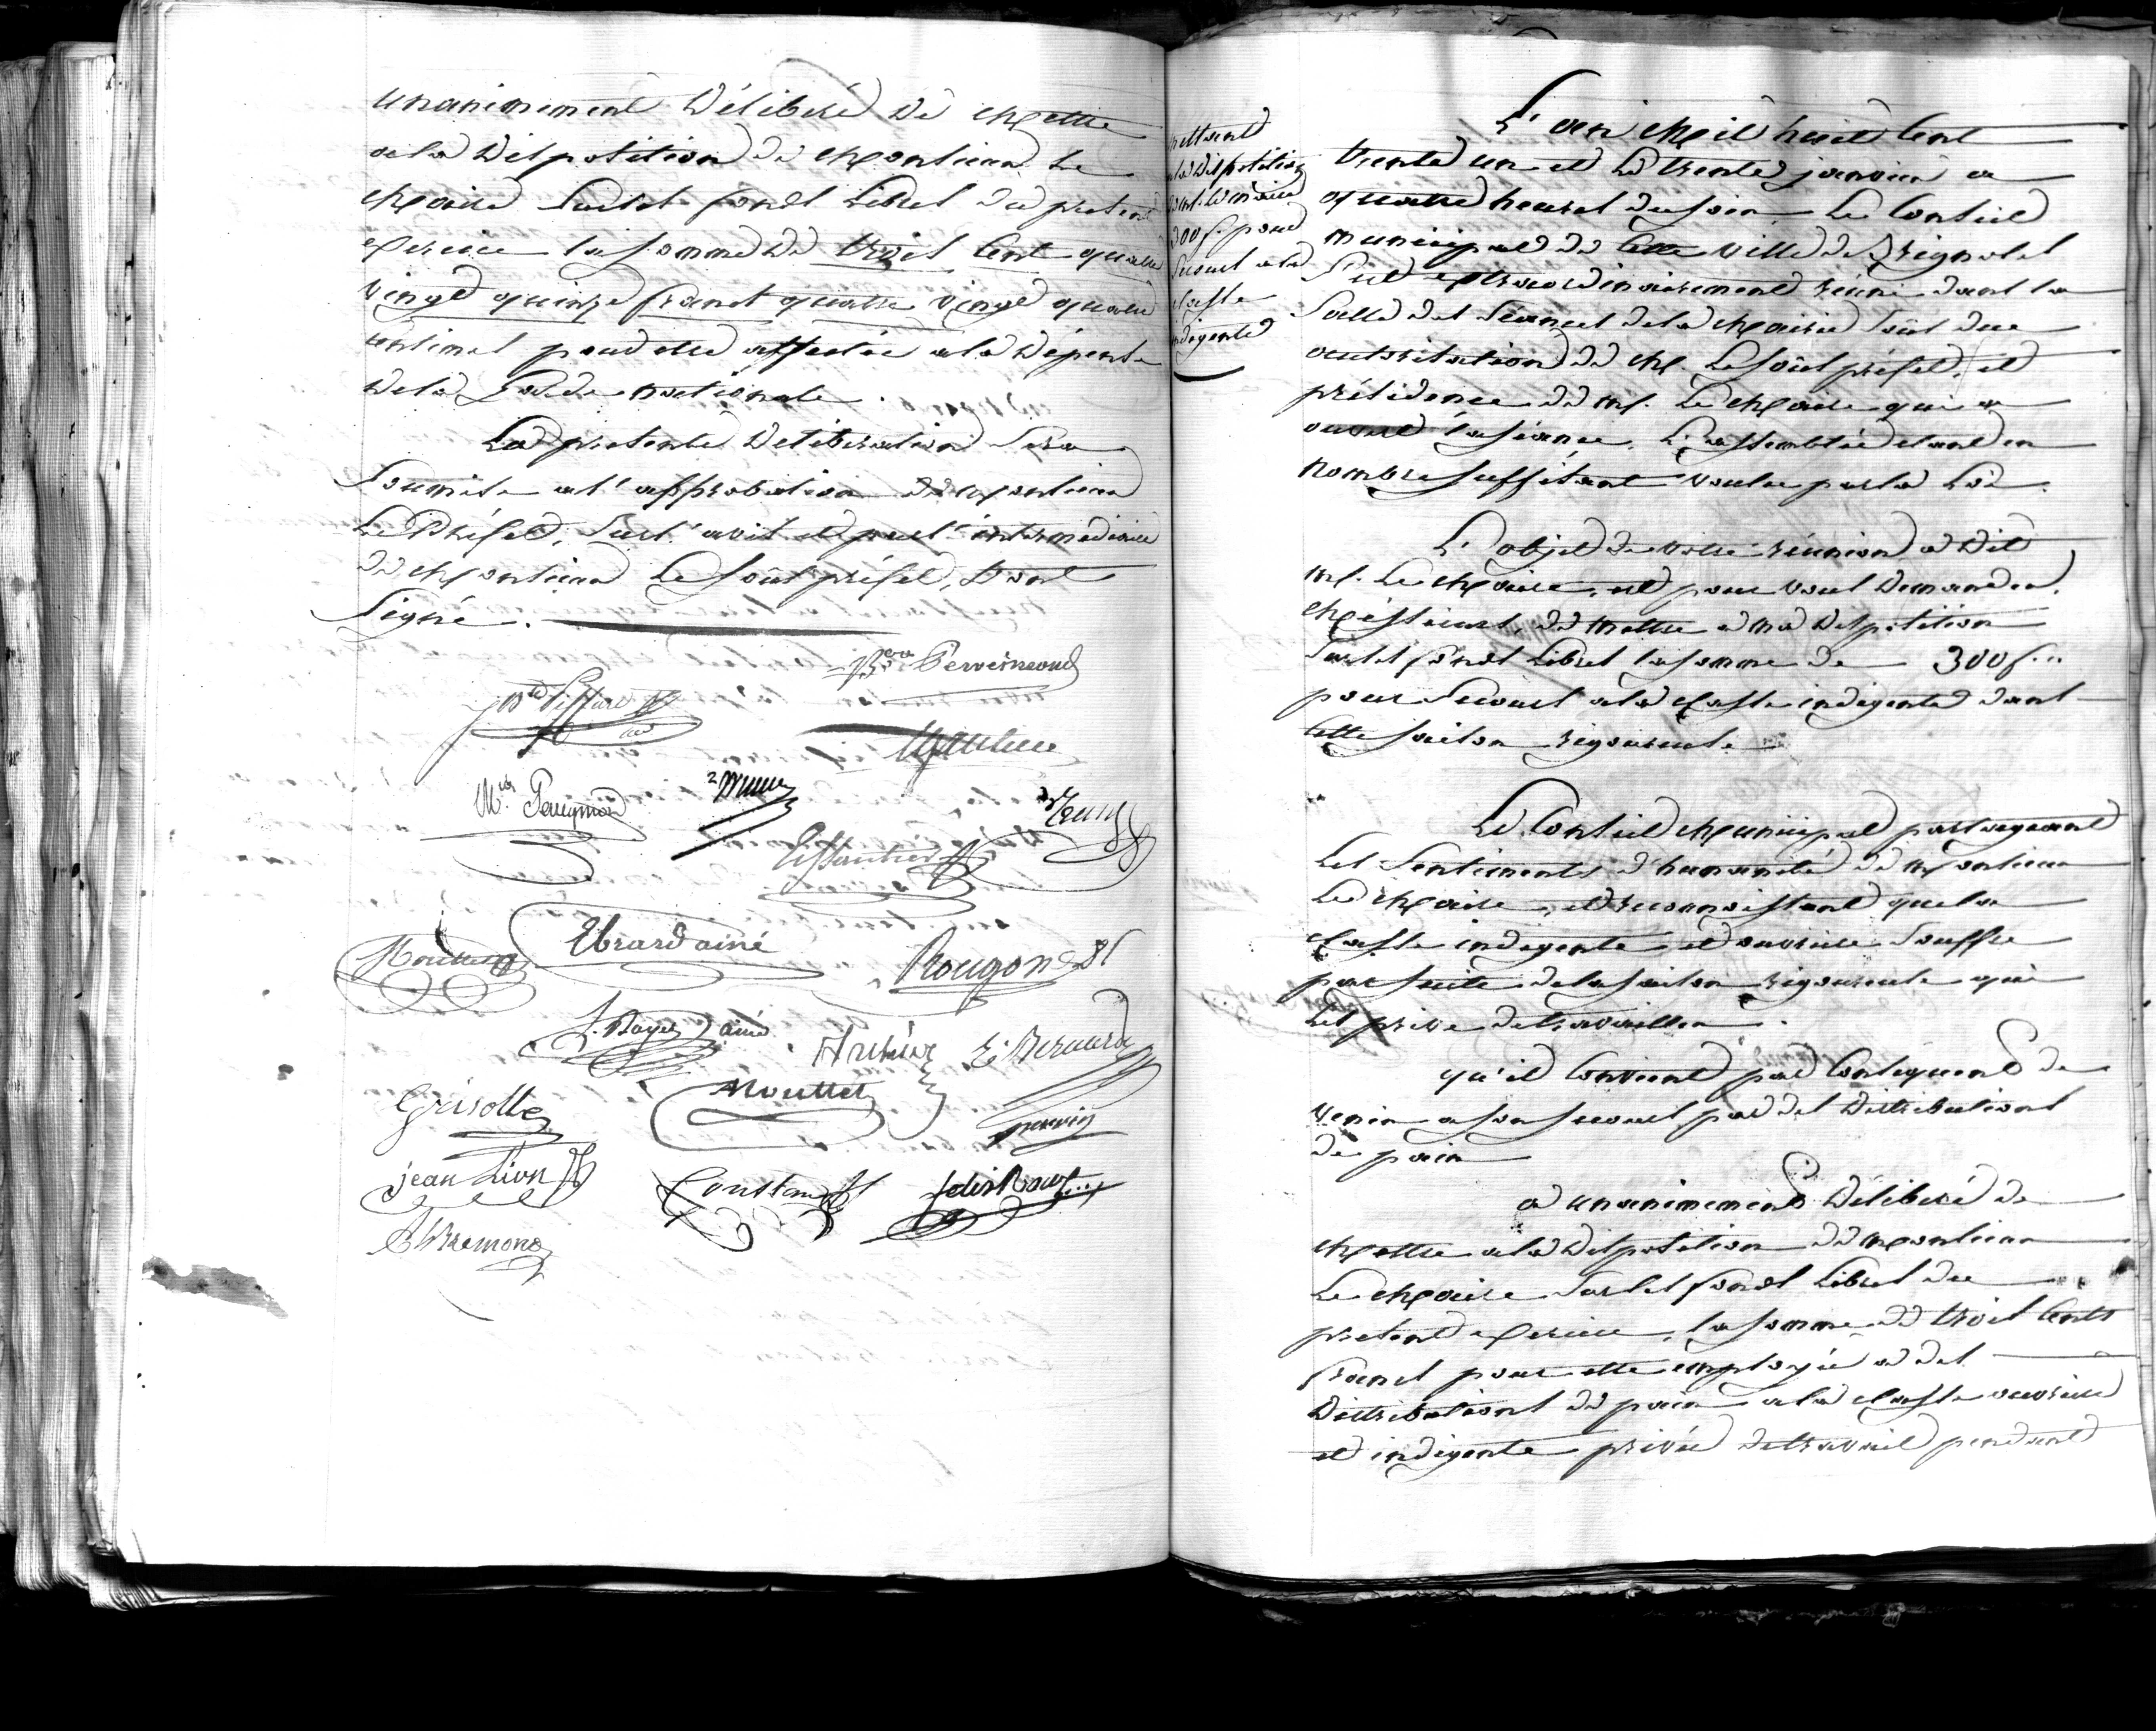 unanimement délibéré de mettre
a la disposition de Monsieur Le
Maire sur les fonds Libres du present
exercice la somme de trois Cent quatre
vingt quinze francs quatre vingt quatre
centimes pour etre affectée a la dépense
de la Garde nationale.
La presente délibération sera
soumise a l'approbation de Monsieur
Le Préfet, sur l'avis et par l'intermédiaire
de Monsieur Le Sous préfet, et ont
signé.
Mouttet
Ebrard ainé
Rougon
ainé
Bernard
Grisolle
Mouttet
jean Lion
Constans
felix Roux
Bremond
mettant
a la disposition
de M. le maire
300 f. pour
secours a la
classe
indigente
L'an Mil huit Cent
trente un et le trente janvier a
quatre heures du soir. Le Conseil
municipal de Cette ville de Brignoles
s'est extraordinairement réuni dans la
salle des séances de la Mairie sous due
autorisation de M. Le sous préfet, et
présidence de M. Le Maire qui a
ouvert la séance. L'assemblée étant en
nombre suffisant voulu par la Loi.
L'objet de votre réunion a dit
M. Le Maire, est pour vous demander,
Messieurs, de mettre a ma disposition
sur les fonds libres la somme de 300 f..
pour secours a la classe indigente dans
cette saison rigoureuse.
Le Conseil Municipal partageant
les sentiments d'humanité de Monsieur
Le Maire, et reconnaissant que la
classe indigente et ouvriere souffre
par suite de la saison rigoureuse qui
les prive de travailler.
qu'il convient par Conséquent de
venir a son secours par des distributions
de pain
a unanimement délibéré de
Mettre a la disposition de Monsieur
Le Maire sur les fonds Libres du
present exercice, la somme de trois Cents
francs pour etre employée a des
distributions de pain a la classe ouvriere
et indigente privée de travail pendant